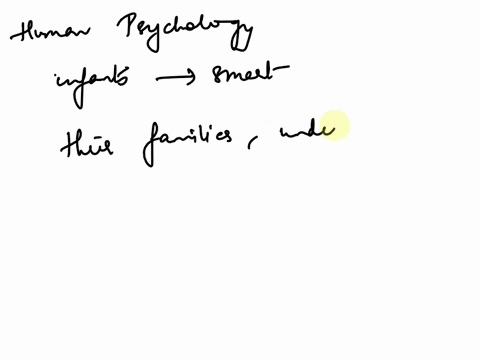 Human Psychology
infants → smart
their families, unde